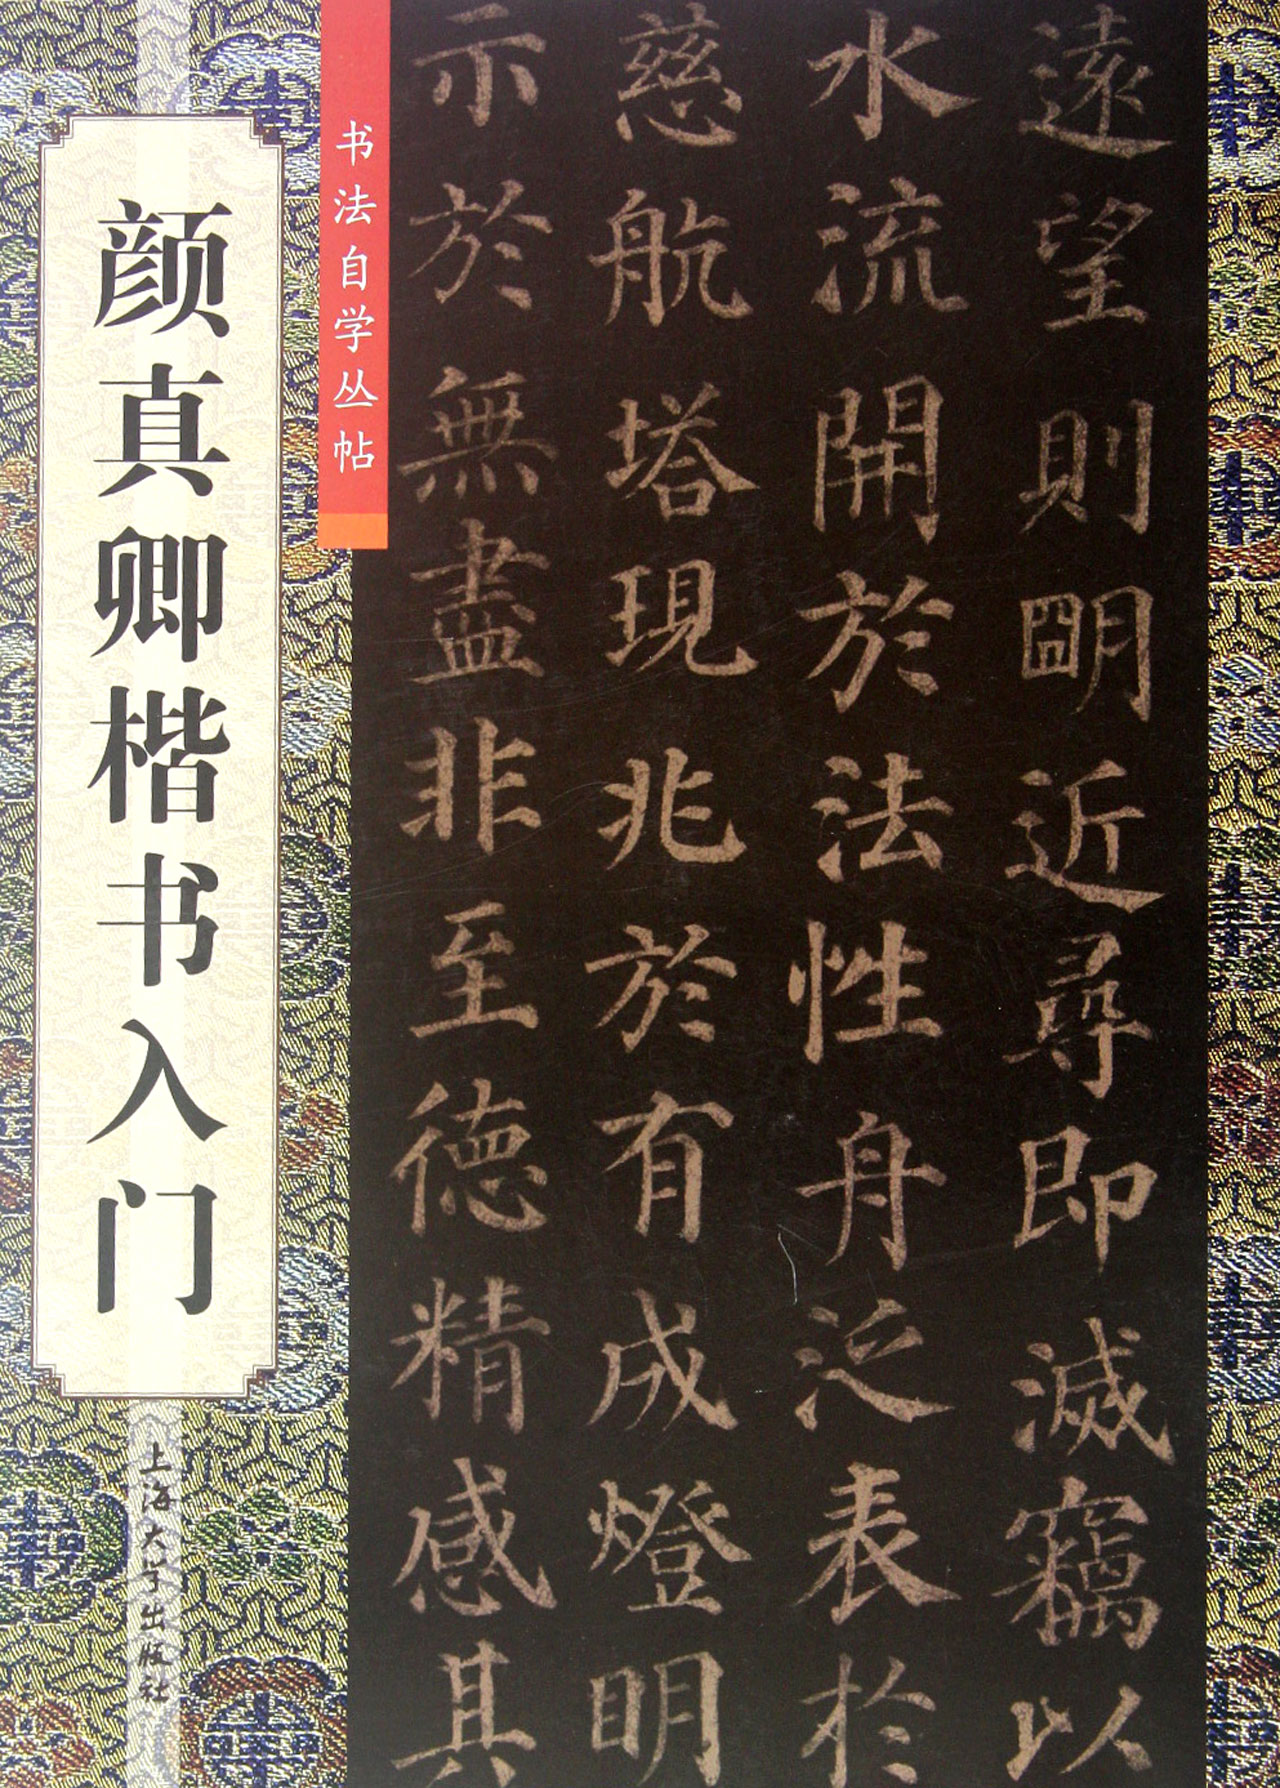 遠望則朙近尋即滅竊以
水流開於法性舟泛表於
慈航塔現兆於有成燈明
示於無盡非至德精感其
书法自学丛帖
颜真卿楷书入门
上海大学出版社